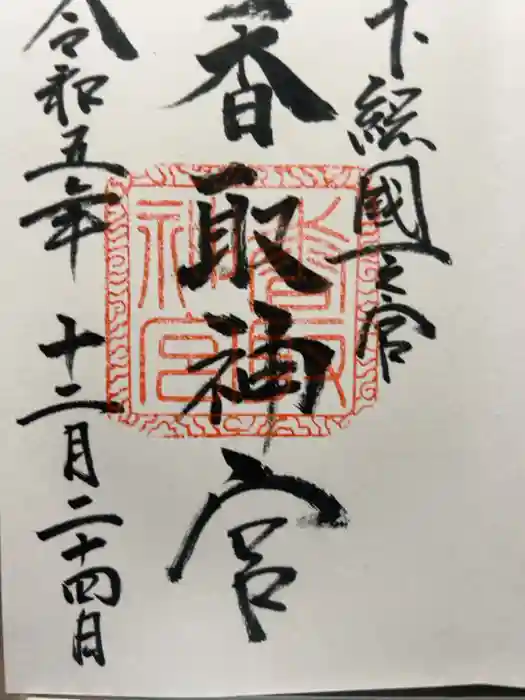 下総國一之宮
香取神宮
令和五年 十二月二十四日
香取
神宮